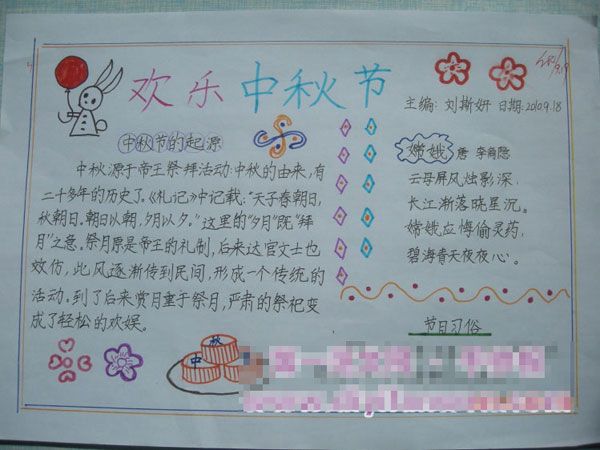 欢乐中秋节
9.19
主编: 刘斯妍 日期: 2010.9.18
中秋节的起源
中秋源于帝王祭拜活动.中秋的由来,有
二十多年的历史了。《札记》中记载:“天子春朝日,
秋朝日.朝日以朝,夕月以夕。”这里的“夕月”既“拜
月”之意.祭月原是帝王的礼制,后来达官文士也
效仿,此风逐渐传到民间,形成一个传统的
活动.到了后来赏月重于祭月,严肃的祭祀变
成了轻松的欢娱。
嫦娥 唐 李商隐
云母屏风烛影深,
长江渐落晓星沉。
嫦娥应悔偷灵药,
碧海青天夜夜心。
节日习俗
中 秋